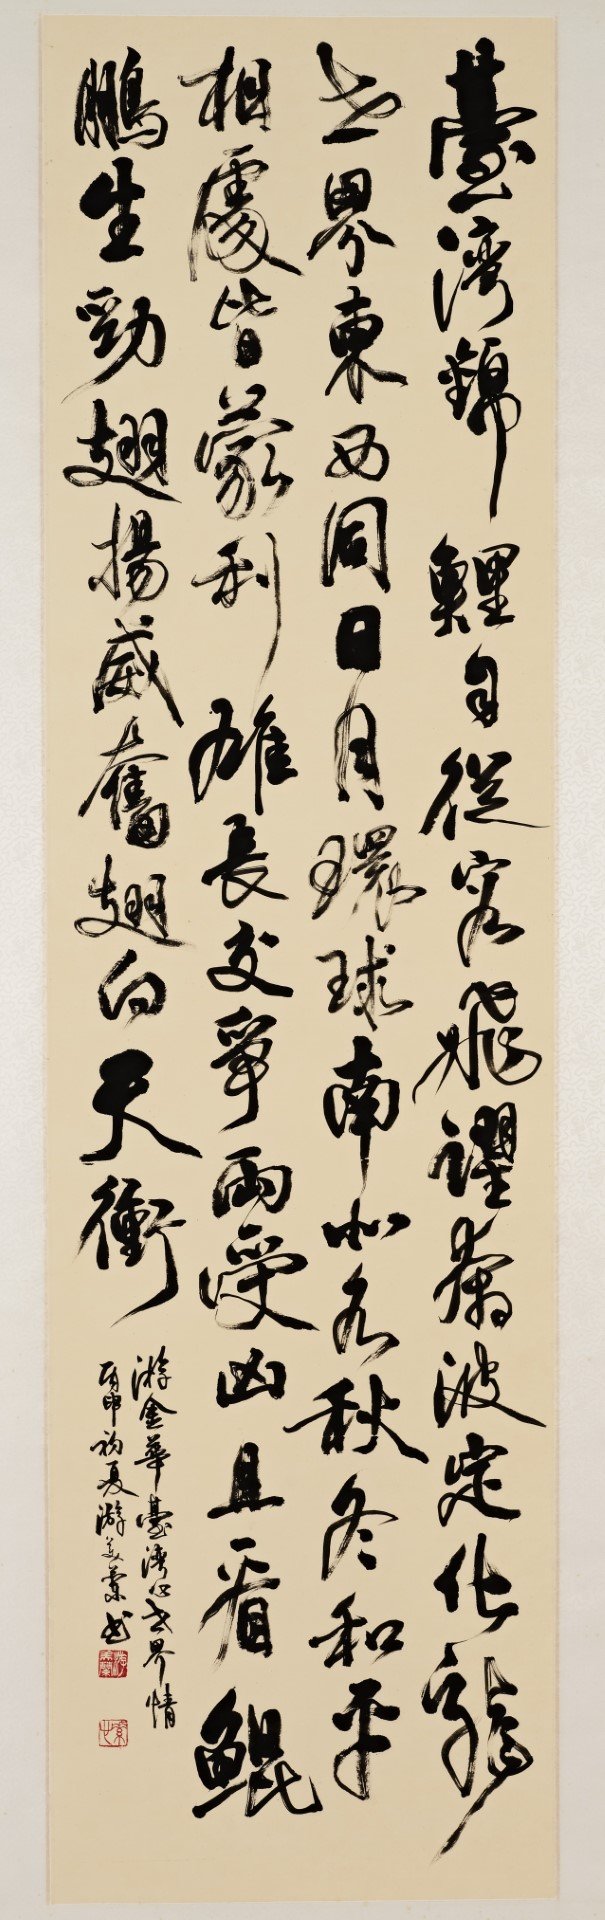 臺灣錦鯉自從容飛躍翻波定化龍
世界東西同日月環球南北各秋冬和平
相處皆蒙利雄長交爭兩受凶且看鯤
鵬生勁翅揚威奮翅向天衝
游金華臺灣心世界情
丙申初夏游美蘭書